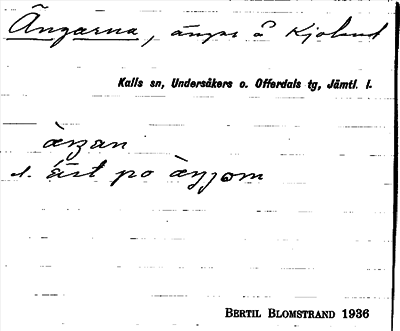 Ängarna, ängar å Kjoland
Kalls sn, Undersåkers o. Offerdals tg, Jämtl. l.
àŋan
st. äst på àŋŋom
BERTIL BLOMSTRAND 1936